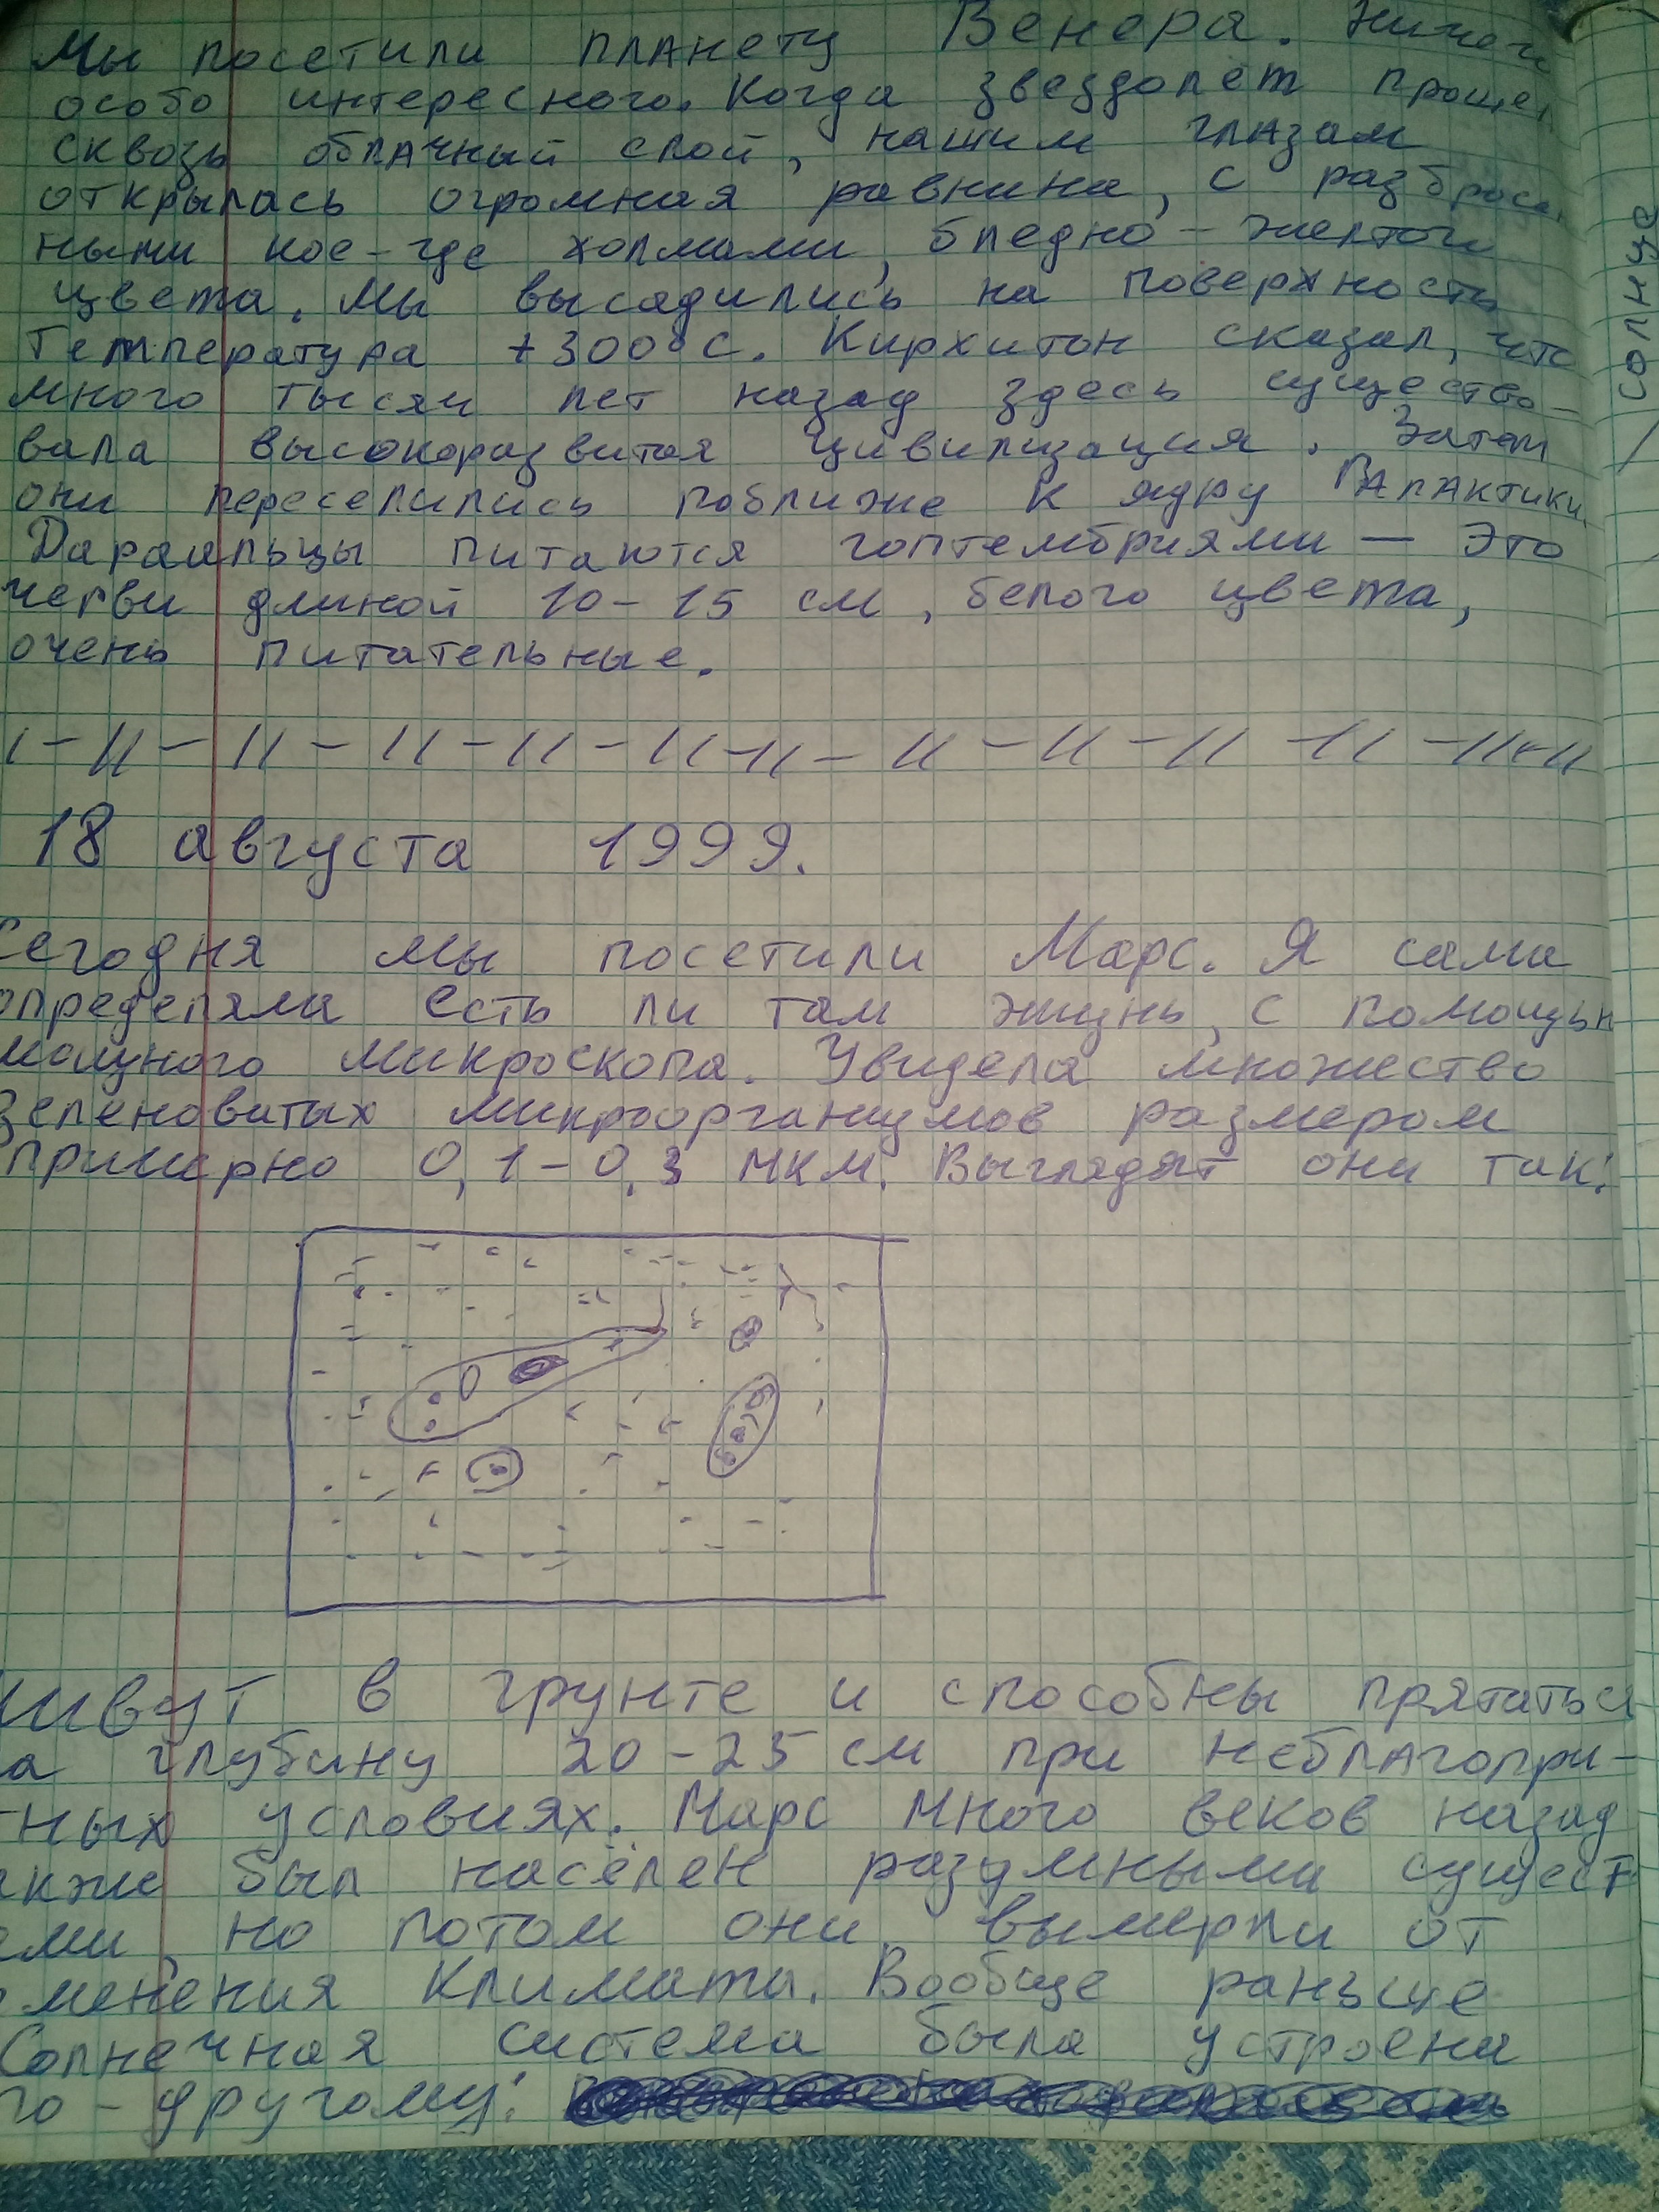 Мы посетили планету Венера. Ничего
особо интересного. Когда звездолёт прошел
сквозь облачный слой, нашим глазам
открылась огромная равнина, с разброса
ными кое-где холмами, бледно-желтого
цвета. Мы высадились на поверхность
Температура +300°С. Кирхитон сказал, что
много тысяч лет назад здесь существо-
вала высокоразвитая цивилизация. Затем
они переселились поближе к ядру Галактики.
Дараильцы питаются гоптембриями — Это
черви длиной 10-15 см, белого цвета,
очень питательные.
18 августа 1999.
Сегодня мы посетили Марс. Я сама
определяла есть ли там жизнь, с помощью
мощного микроскопа. Увидела множество
зеленоватых микроорганизмов размером
примерно 0,1-0,3 мкм. Выглядят они так:
живут в грунте и способны прятаться
а глубину 20-25 см при неблагопри-
тных условиях. Марс много веков назад
акже был населён разумными сущест
ами, но потом они вымерли от
менения климата. Вообще раньше
Солнечная система была устроена
по-другому:
солнце